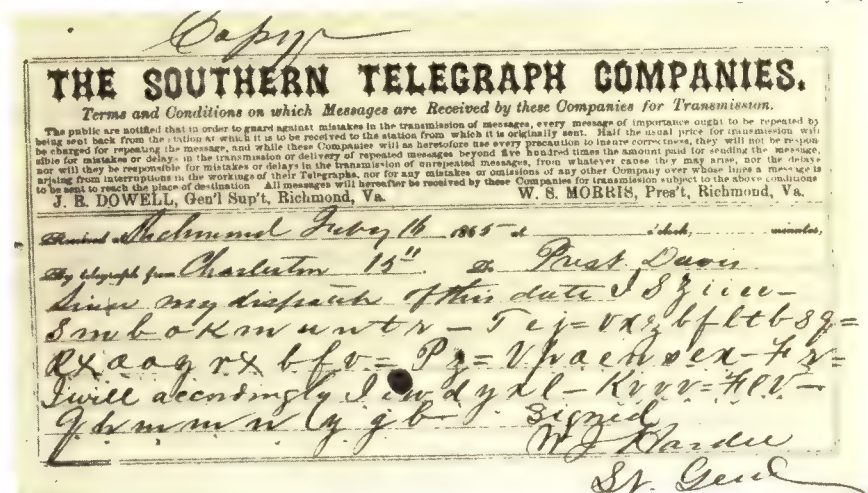 Copy
THE SOUTHERN TELEGRAPH COMPANIES.
Terms and Conditions on which Messages are Received by these Companies for Transmission.
The public are notified that in order to guard against mistakes in the transmission of messages, every message of importance ought to be repeated by
being sent back from the station at which it is to be received to the station from which it is originally sent. Half the usual price for transmission will
be charged for repeating the message, and while these Companies will as heretofore use every precaution to insure correctness, they will not be respon-
sible for mistakes or delays in the transmission or delivery of repeated messages beyond five hundred times the amount paid for sending the message
nor will they be responsible for mistakes or delays in the transmission of unrepeated messages, from whatever cause they may arise, nor for delays
arising from interruptions in the workings of their Telegraphs, nor for any mistakes or omissions of any other Company over whose lines a message is
to be sent to reach the place of destination All messages will hereafter be received by these Companies for transmission subject to the above conditions
J. R. DOWELL, Gen'l Sup't, Richmond, Va. W. S. MORRIS, Pres't, Richmond, Va.
Received at Richmond Feby 16 1865 at o'clock, minutes,
By telegraph from Charleston 15" To Prest. Davis
Since my dispatch of this date I
I will accordingly
Signed
W J Hardee
Lt. Genl